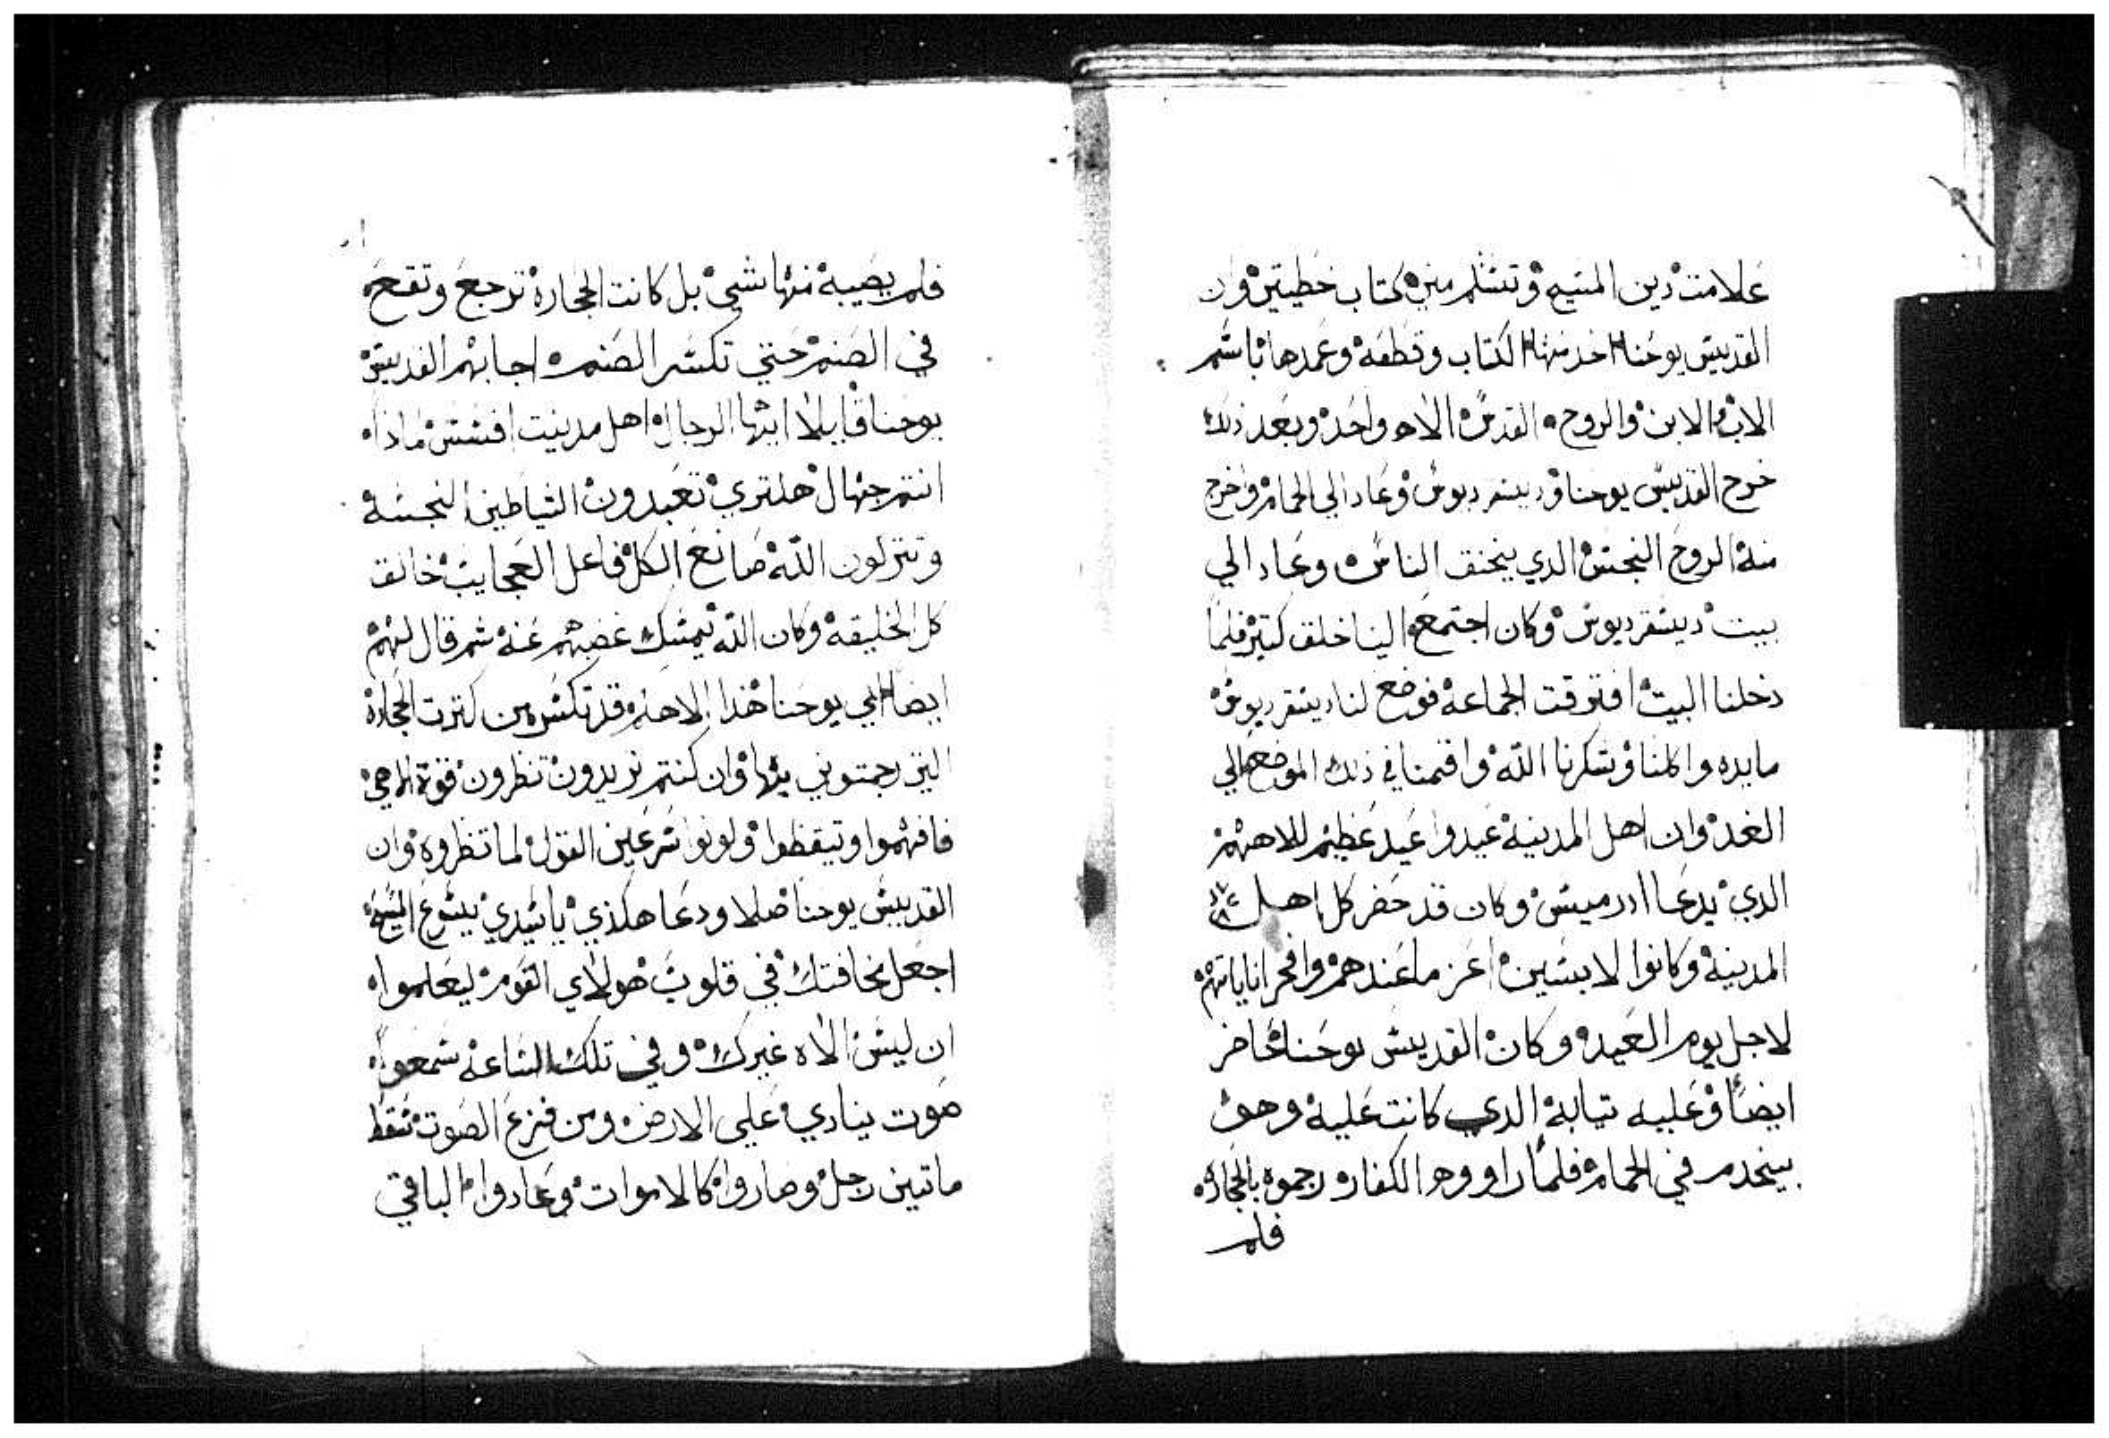 علامت دين المسيح وتتسلم مني كتاب خطيتي وان
القديس يوحنا اخد منها الكتاب وقطعه وعمدها باسم
الاب والابن والروح القدس الاه واحد وبعد ذلك
خرج القديس يوحنا وديسقرديوس وعاد الي الحمام وخرج
منه الروح النجس الدي يخنق الناس وعاد الي
بيت ديسقرديوس وكان اجتمع الينا خلق كتير فلما
دخلنا البيت افترقت الجماعه فوضع لنا ديسقرديوس
مايده واكلنا وشكرنا الله واقمنا في ذلك الموضع الي
الغد وان اهل المدينه عيدوا عيد عظيم للاههم
الدي يدعا ادرميس وكان قد حضر كل اهل
المدينه وكانوا لابسين اعز ما عندهم وافخر
لاجل يوم العيد وكان القديس يوحنا حاضر
ايضاً وعليه تيابه الدي كانت عليه وهو
بيخدم في الحمام فلما راووه الكفار رجموه بالحجاره
فلم
فلم يصيبه منها شي بل كانت الحجاره ترجع وتقع
في الصنم حتي تكسر الصنم اجابهم القديس
يوحنا قايلا ايها الرجال اهل مدينت افسس ماذا
انتم جهال هل تري تعبدون الشياطين النجسه
وتتركون الله صانع الكل فاعل العجايب خالق
كل الخليقه وكان الله يمسك غضبهم عنه ثم قال لهم
ايضا ابي يوحنا هذا الاهكم قد تكسر من كترت الحجاره
التي رجمتوني بها وان كنتم تريدون تنظرون قوة الاهي
فافهموا وتيقظوا وكونوا سرعين القول لما تنظروه وان
القديس يوحنا صلا ودعا هكذي يا سيدي يسوع المسيح
اجعل مخافتك في قلوب هولاي القوم ليعلموا
ان ليس الاه غيرك وفي تلك الساعه سمعوا
صوت ينادي علي الارض ومن فزع الصوت سقط
ماتين رجل وصاروا كالاموات وعادوا الباقي